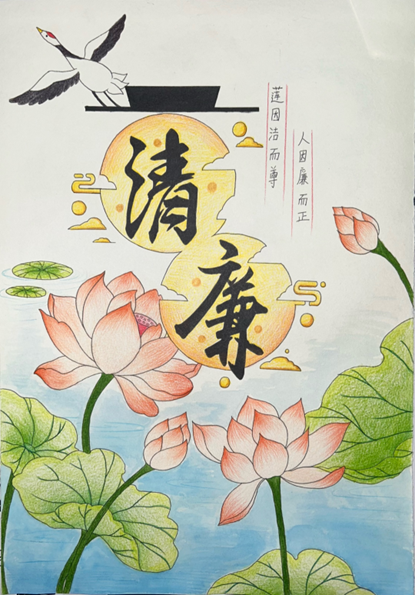 清廉
莲因洁而尊
人因廉而正